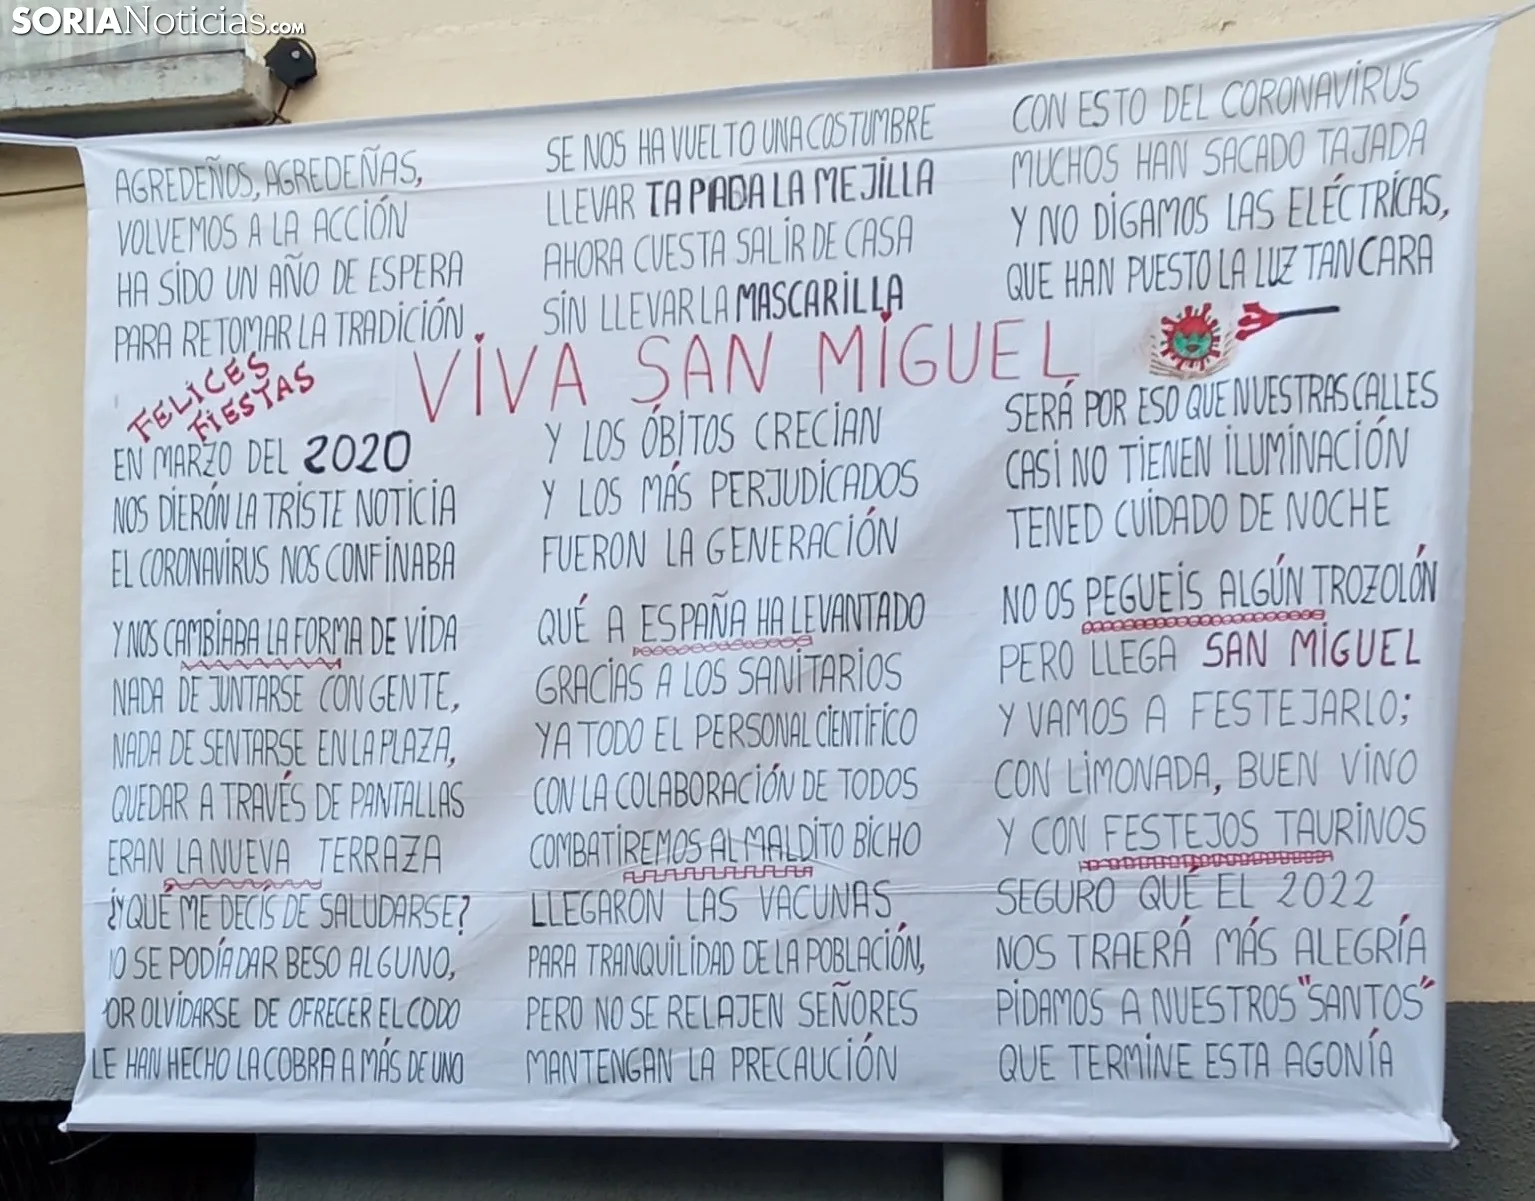 SORIANoticias.com
AGREDEÑOS, AGREDEÑAS,
VOLVEMOS A LA ACCIÓN
HA SIDO UN AÑO DE ESPERA
PARA RETOMAR LA TRADICIÓN
FELICES
FIESTAS
EN MARZO DEL 2020
NOS DIERÓN LA TRISTE NOTICIA
EL CORONAVÍRUS NOS CONFINABA
Y NOS CAMBIABA LA FORMA DE VIDA
NADA DE JUNTARSE CON GENTE,
NADA DE SENTARSE EN LA PLAZA,
QUEDAR A TRAVÉS DE PANTALLAS
ERAN LA NUEVA TERRAZA
¿Y QUÉ ME DECÍS DE SALUDARSE?
NO SE PODÍA DAR BESO ALGUNO,
OR OLVIDARSE DE OFRECER EL CODO
LE HAN HECHO LA COBRA A MÁS DE UNO
SE NOS HA VUELTO UNA COSTUMBRE
LLEVAR TAPADA LA MEJILLA
AHORA CUESTA SALIR DE CASA
SIN LLEVAR LA MASCARILLA
VIVA SAN MIGUEL
Y LOS ÓBITOS CRECIAN
Y LOS MÁS PERJUDICADOS
FUERON LA GENERACIÓN
QUÉ A ESPAÑA HA LEVANTADO
GRACIAS A LOS SANITARIOS
Y A TODO EL PERSONAL CIENTÍFICO
CON LA COLABORACIÓN DE TODOS
COMBATIREMOS AL MALDITO BICHO
LLEGARON LAS VACUNAS
PARA TRANQUILIDAD DE LA POBLACIÓN,
PERO NO SE RELAJEN SEÑORES
MANTENGAN LA PRECAUCIÓN
CON ESTO DEL CORONAVÍRUS
MUCHOS HAN SACADO TAJADA
Y NO DIGAMOS LAS ELÉCTRICAS,
QUE HAN PUESTO LA LUZ TAN CARA
SERÁ POR ESO QUE NUESTRAS CALLES
CASI NO TIENEN ILUMINACIÓN
TENED CUIDADO DE NOCHE
NO OS PEGUEIS ALGÚN TROZOLÓN
PERO LLEGA SAN MIGUEL
Y VAMOS A FESTEJARLO;
CON LIMONADA, BUEN VINO
Y CON FESTEJOS TAURINOS
SEGURO QUÉ EL 2022
NOS TRAERÁ MÁS ALEGRÍA
PIDAMOS A NUESTROS "SANTOS"
QUE TERMINE ESTA AGONÍA